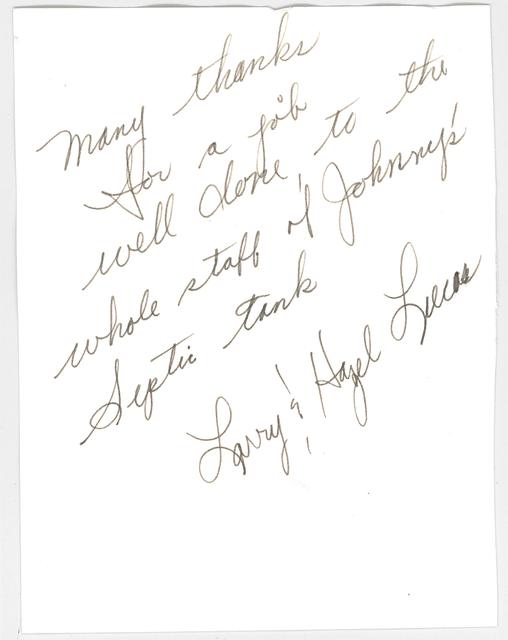 Many thanks
for a job
well done, to the
whole staff of Johnny's
Septic tank
Larry & Hazel Lucas